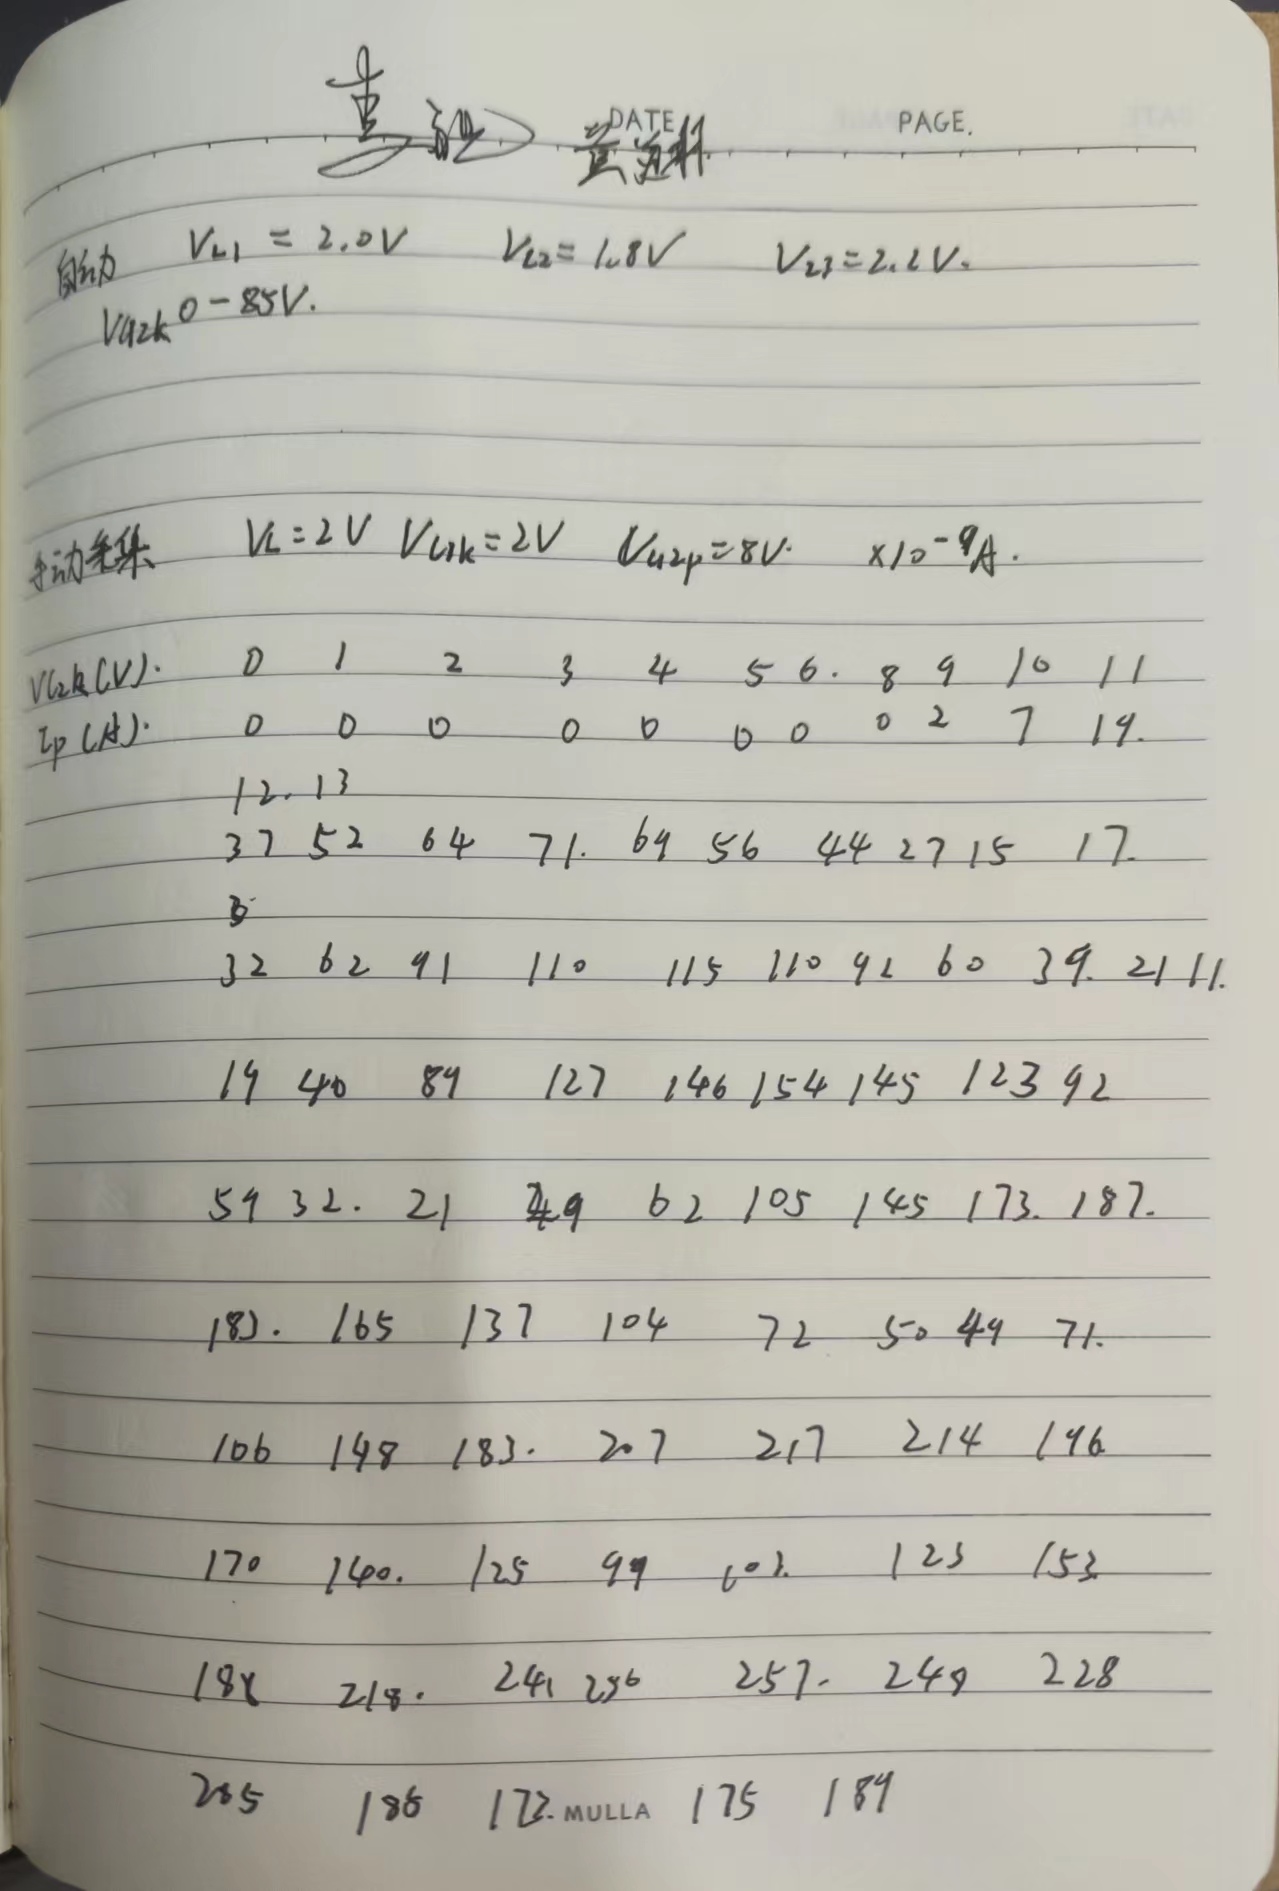 DATE PAGE.
自动 V_L1 = 2.0V V_L2 = 1.8V V_L3 = 2.2V.
VG2k 0-85V.
手动采集 VL=2V VG1k=2V VG2p=8V. ×10⁻⁹A.
VG2k(V). 0 1 2 3 4 5 6. 8 9 10 11
Ip(A). 0 0 0 0 0 0 0 0 2 7 19.
12. 13
37 52 64 71. 69 56 44 27 15 17.
32 62 91 110 115 110 92 60 39. 21 11.
19 40 89 127 146 154 145 123 92
59 32. 21 29 62 105 145 173. 187.
183. 165 137 104 72 50 49 71.
106 148 183. 207 217 214 196
170 140. 125 99 103. 123 153
188 218. 241 256 257. 249 228
205 186 173. MULLA 175 189